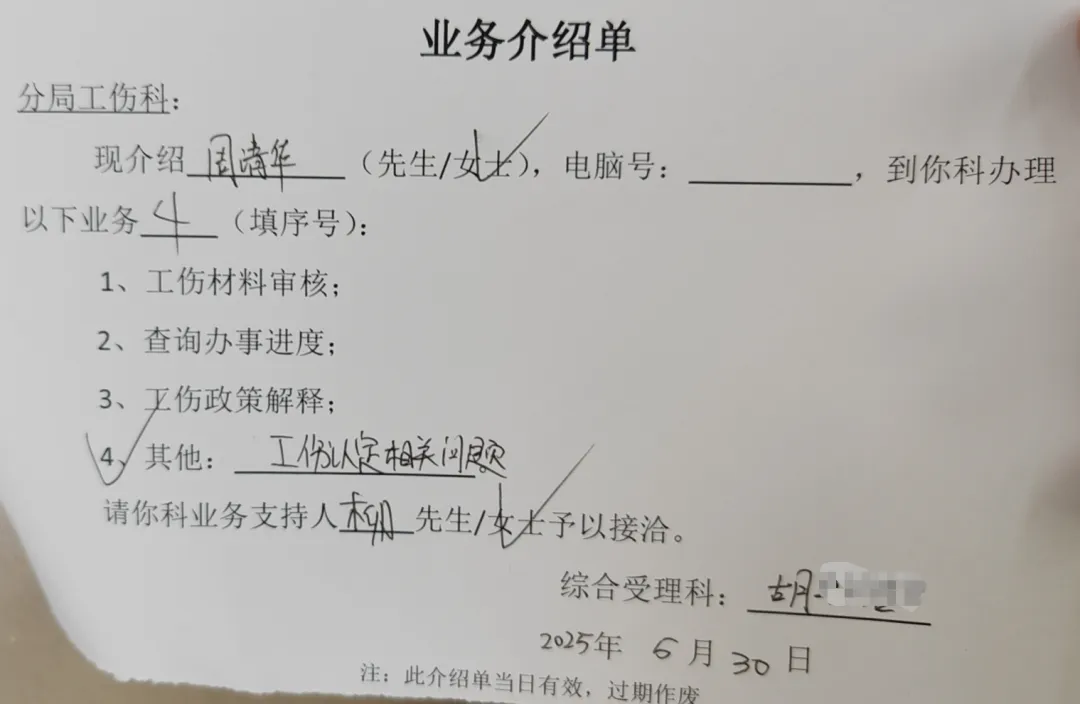 业务介绍单
分局工伤科：
现介绍周清华（先生/女士），电脑号：，到你科办理
以下业务4（填序号）：
1、工伤材料审核；
2、查询办事进度；
3、工伤政策解释；
4、其他：工伤认定相关问题
请你科业务支持人 先生/女士予以接洽。
综合受理科：胡
2025年 6月30日
注：此介绍单当日有效，过期作废